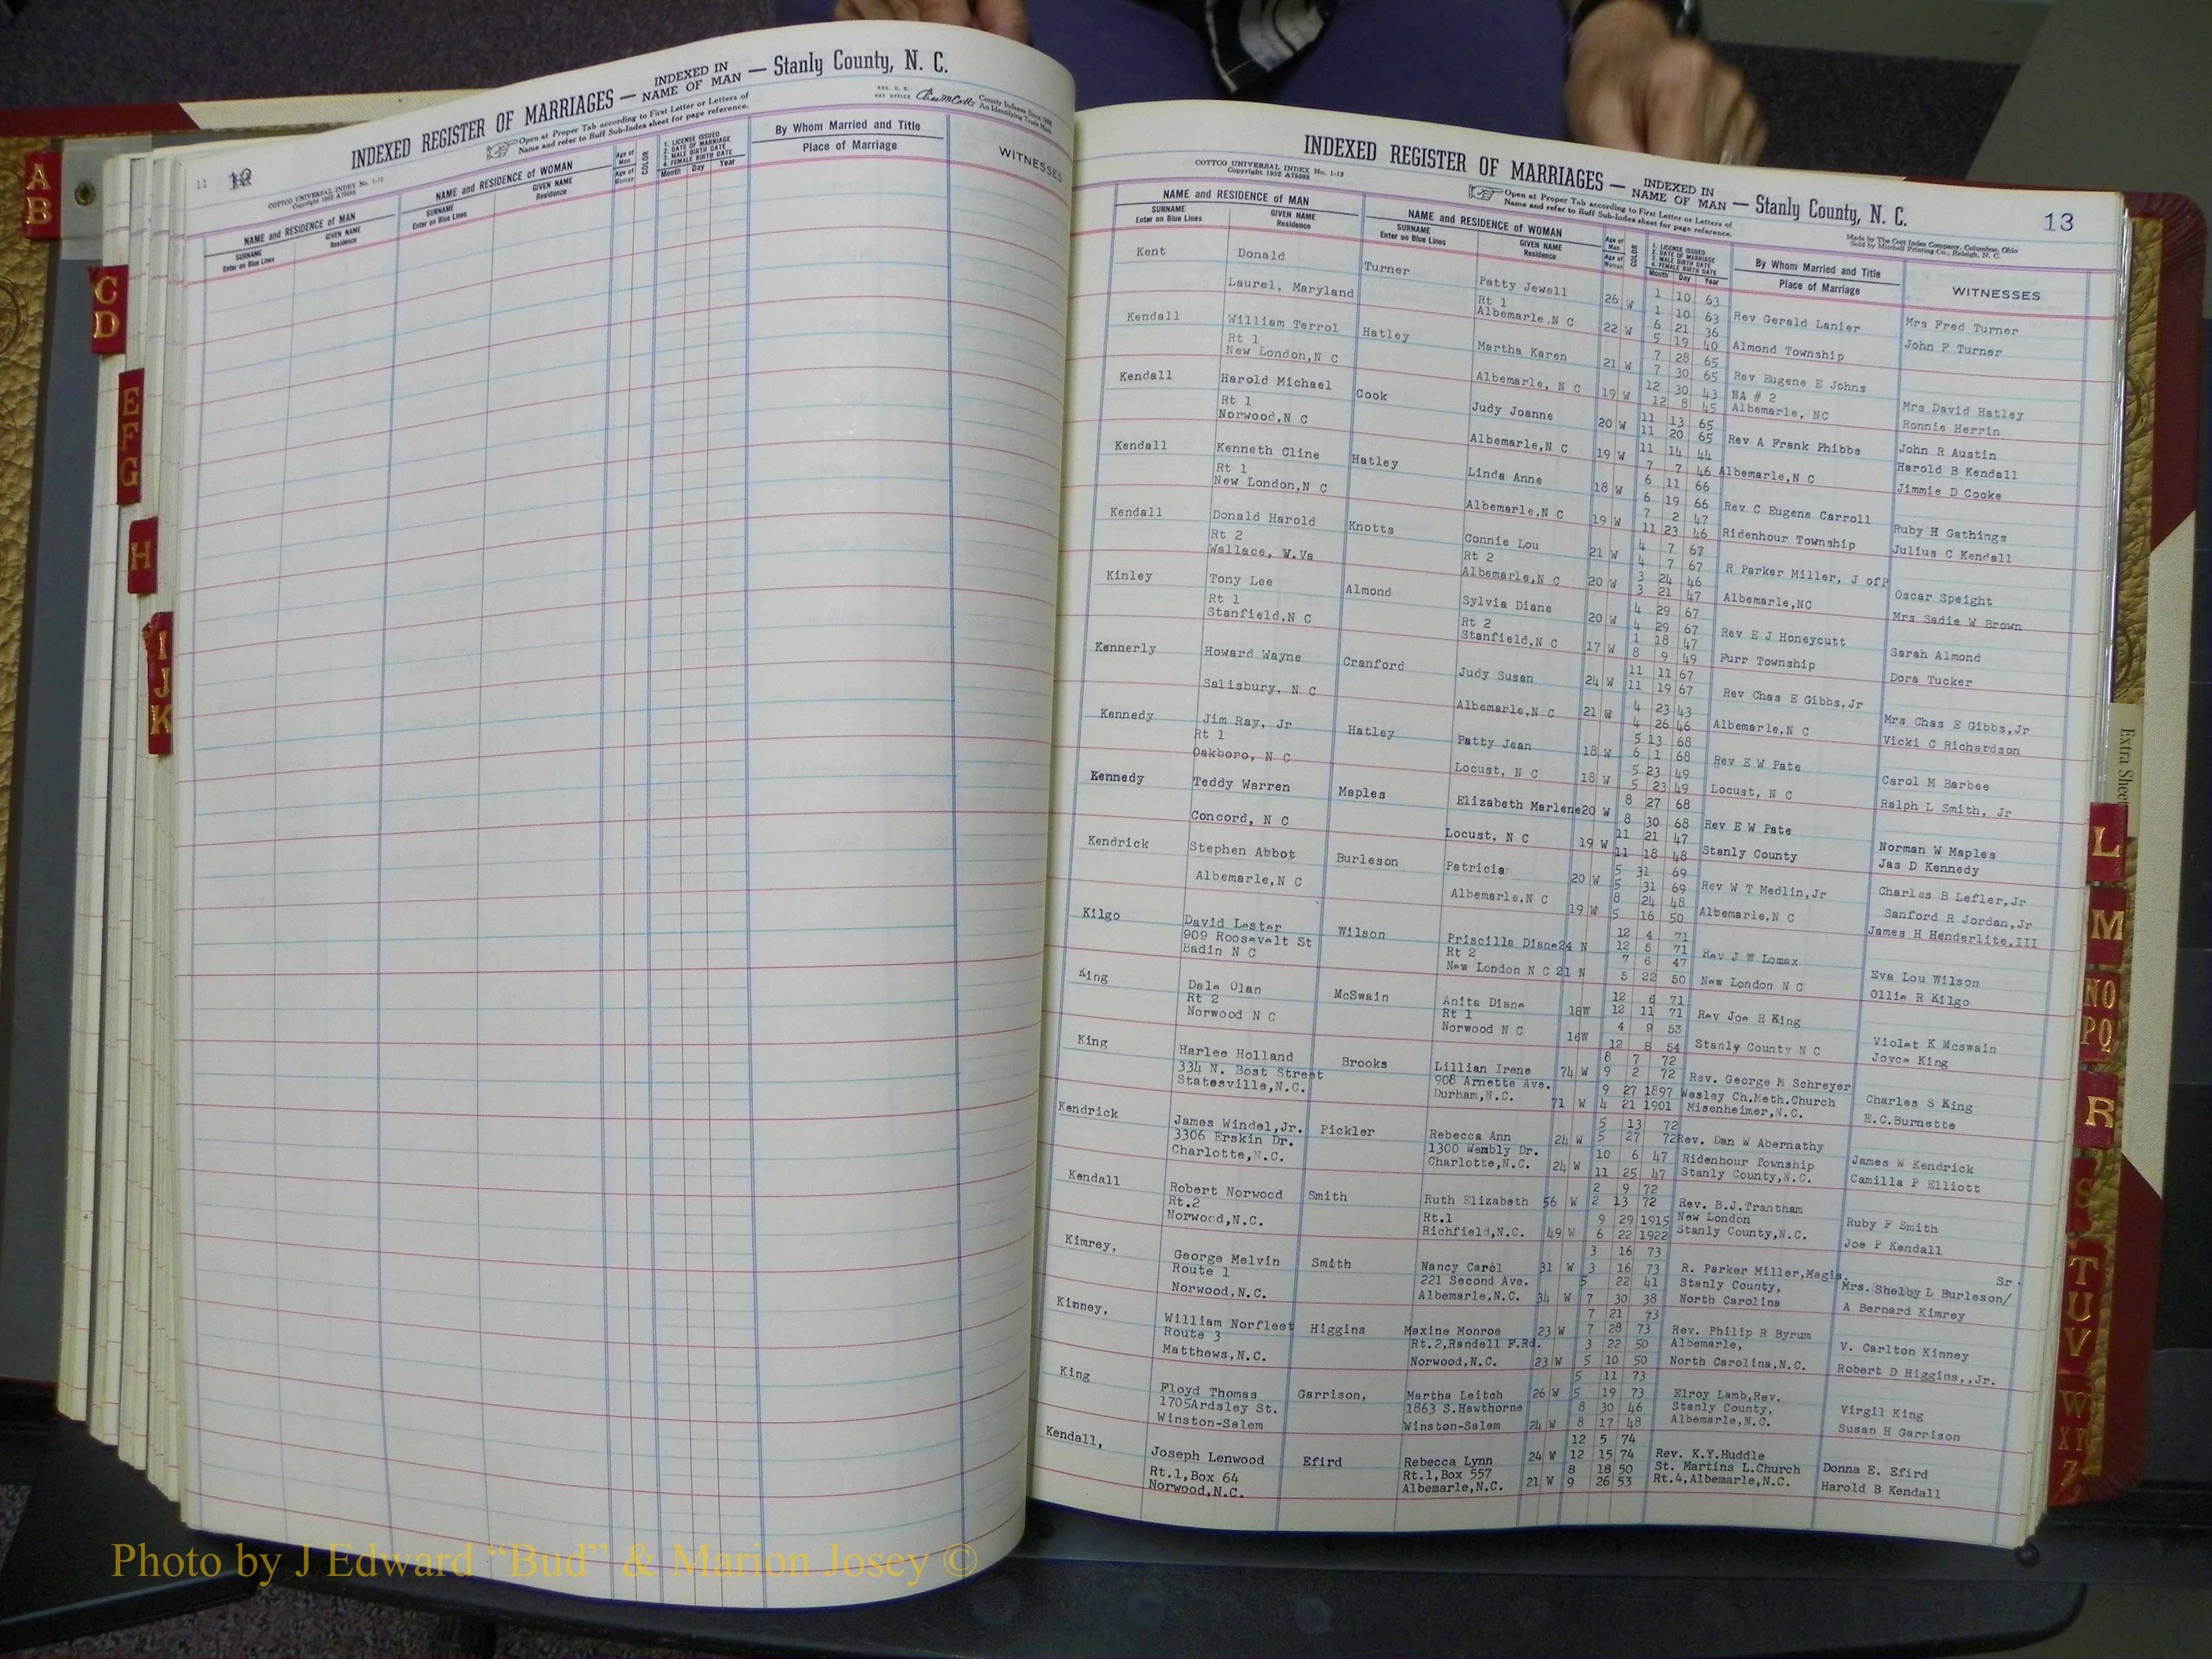 INDEXED REGISTER OF MARRIAGES — INDEXED IN NAME OF MAN — Stanly County, N. C.
Open at Proper Tab according to First Letter or Letters of
Name and refer to Buff Sub-Index sheet for page reference.
REG. U. S. PAT OFFICE County Indexes Since 1888
An Identifying Trade Mark
11 12
COTTCO UNIVERSAL INDEX No. 1-12
Copyright 1952 A75085
NAME and RESIDENCE OF MAN
SURNAME
Enter on Blue Lines
GIVEN NAME
Residence
NAME and RESIDENCE OF WOMAN
SURNAME
Enter on Blue Lines
GIVEN NAME
Residence
Age of Man
Age of Woman
COLOR
1. LICENSE ISSUED
2. DATE OF MARRIAGE
3. MALE BIRTH DATE
4. FEMALE BIRTH DATE
Month Day Year
By Whom Married and Title
Place of Marriage
WITNESSES
INDEXED REGISTER OF MARRIAGES — INDEXED IN NAME OF MAN — Stanly County, N. C.
13
COTTCO UNIVERSAL INDEX No. 1-12
Copyright 1952 A75085
Open at Proper Tab according to First Letter or Letters of
Name and refer to Buff Sub-Index sheet for page reference.
Made by The Cott Index Company, Columbus, Ohio
Sold by Mitchell Printing Co., Raleigh, N. C.
NAME and RESIDENCE OF MAN
SURNAME
Enter on Blue Lines
GIVEN NAME
Residence
NAME and RESIDENCE OF WOMAN
SURNAME
Enter on Blue Lines
GIVEN NAME
Residence
Age of Man
Age of Woman
COLOR
1. LICENSE ISSUED
2. DATE OF MARRIAGE
3. MALE BIRTH DATE
4. FEMALE BIRTH DATE
Month Day Year
By Whom Married and Title
Place of Marriage
WITNESSES
Kent Donald Turner Patty Jewell 26 W 1 10 63 Rev Gerald Lanier Mrs Fred Turner
Laurel, Maryland Rt 1 1 10 63
Albemarle,N C 22 W 6 21 36 Almond Township John F Turner
5 19 40
Kendall William Terrol Hatley Martha Karen 21 W 7 28 65 Rev Eugene E Johns
Rt 1 7 30 65
New London,N C Albemarle, N C 19 W 12 30 43 NA # 2 Mrs David Hatley
12 8 45 Albemarle, NC Ronnie Herrin
Kendall Harold Michael Cook Judy Joanne 20 W 11 13 65 Rev A Frank Phibbs John R Austin
Rt 1 11 20 65 Harold B Kendall
Norwood,N C Albemarle,N C 19 W 11 14 44 Albemarle,N C Jimmie D Cooke
7 7 46
Kendall Kenneth Cline Hatley Linda Anne 18 W 6 11 66 Rev C Eugene Carroll Ruby H Gathings
Rt 1 6 19 66
New London,N C Albemarle,N C 19 W 7 2 47 Ridenhour Township Julius C Kendall
11 23 46
Kendall Donald Harold Knotts Connie Lou 21 W 4 7 67 R Parker Miller, J ofP Oscar Speight
Rt 2 Rt 2 4 7 67
Wallace, W.Va Albemarle,N C 20 W 3 24 46 Albemarle,NC Mrs Sadie W Brown
3 21 47
Kinley Tony Lee Almond Sylvia Diane 20 W 4 29 67 Rev E J Honeycutt Sarah Almond
Rt 1 Rt 2 4 29 67
Stanfield,N C Stanfield,N C 17 W 1 18 47 Furr Township Dora Tucker
8 9 49
Kennerly Howard Wayne Cranford Judy Susan 24 W 11 11 67 Rev Chas E Gibbs,Jr Mrs Chas E Gibbs,Jr
11 19 67
Salisbury, N C Albemarle,N C 21 W 4 23 43 Albemarle,N C Vicki C Richardson
4 26 46
Kennedy Jim Ray, Jr Hatley Patty Jean 18 W 5 13 68 Rev E W Pate Carol M Barbee
Rt 1 6 1 68
Oakboro, N C Locust, N C 18 W 5 23 49 Locust, N C Ralph L Smith, Jr
5 23 49
Kennedy Teddy Warren Maples Elizabeth Marlene 20 W 8 27 68 Rev E W Pate Norman W Maples
8 30 68
Concord, N C Locust, N C 19 W 11 21 47 Stanly County Jas D Kennedy
11 18 48
Kendrick Stephen Abbot Burleson Patricia 20 W 5 31 69 Rev W T Medlin,Jr Charles B Lefler,Jr
5 31 69 Sanford R Jordan,Jr
Albemarle,N C Albemarle,N C 19 W 8 24 48 Albemarle,N C James H Henderlite,III
5 16 50
Kilgo David Lester Wilson Priscilla Diane 24 N 12 4 71 Rev J W Lomax Eva Lou Wilson
909 Roosevelt St Rt 2 12 5 71
Badin N C New London N C 21 N 7 6 47 New London N C Ollie R Kilgo
5 22 50
King Dale Olan McSwain Anita Diane 18W 12 6 71 Rev Joe H King Violet K Mcswain
Rt 2 Rt 1 12 11 71
Norwood N C Norwood N C 16W 4 9 53 Stanly County N C Joyce King
12 8 54
King Harlee Holland Brooks Lillian Irene 74 W 8 7 72 Rev. George M Schreyer Charles S King
334 N. Bost Street 908 Arnette Ave. 9 2 72
Statesville,N.C. Durham,N.C. 71 W 9 27 1897 Wesley Ch.Meth.Church E.C.Burnette
4 21 1901 Misenheimer,N.C.
Kendrick James Windel,Jr. Pickler Rebecca Ann 24 W 5 13 72 Rev. Dan W Abernathy James W Kendrick
3306 Erskin Dr. 1300 Wembly Dr. 5 27 72
Charlotte,N.C. Charlotte,N.C. 24 W 10 6 47 Ridenhour Township Camilla P Elliott
11 25 47 Stanly County,N.C.
Kendall Robert Norwood Smith Ruth Elizabeth 56 W 2 9 72 Rev. B.J.Trantham Ruby F Smith
Rt.2 Rt.1 2 13 72
Norwood,N.C. Richfield,N.C. 49 W 9 29 1915 New London Joe P Kendall
6 22 1922 Stanly County,N.C.
Kimrey, George Melvin Smith Nancy Carol 31 W 3 16 73 R. Parker Miller,Magis. Mrs. Shelby L Burleson/ Sr.
Route 1 221 Second Ave. 3 16 73
Norwood,N.C. Albemarle,N.C. 34 W 5 22 41 Stanly County, A Bernard Kimrey
7 30 38 North Carolina
Kinney, William Norfleet Higgins Maxine Monroe 23 W 7 21 73 Rev. Philip R Byrum V. Carlton Kinney
Route 3 Rt.2,Randell F.Rd. 7 28 73
Matthews,N.C. Norwood,N.C. 23 W 3 22 50 Albemarle, Robert D Higgins,,Jr.
5 10 50 North Carolina,N.C.
King Floyd Thomas Garrison, Martha Leitch 26 W 5 11 73 Elroy Lamb,Rev. Virgil King
1705Ardsley St. 1863 S.Hawthorne 5 19 73
Winston-Salem Winston-Salem 24 W 8 30 46 Stanly County, Susan H Garrison
8 17 48 Albemarle,N.C.
Kendall, Joseph Lenwood Efird Rebecca Lynn 24 W 12 5 74 Rev. K.Y.Huddle Donna E. Efird
Rt.1,Box 64 Rt.1,Box 557 12 15 74
Norwood,N.C. Albemarle,N.C. 21 W 8 18 50 St. Martins L.Church Harold B Kendall
9 26 53 Rt.4,Albemarle,N.C.
A
B
C
D
E
F
G
H
I
J
K
L
M
NO
PQ
R
S
T
U
V
W
X Y
Z
Extra Sheet
Photo by J Edward “Bud” & Marion Josey ©